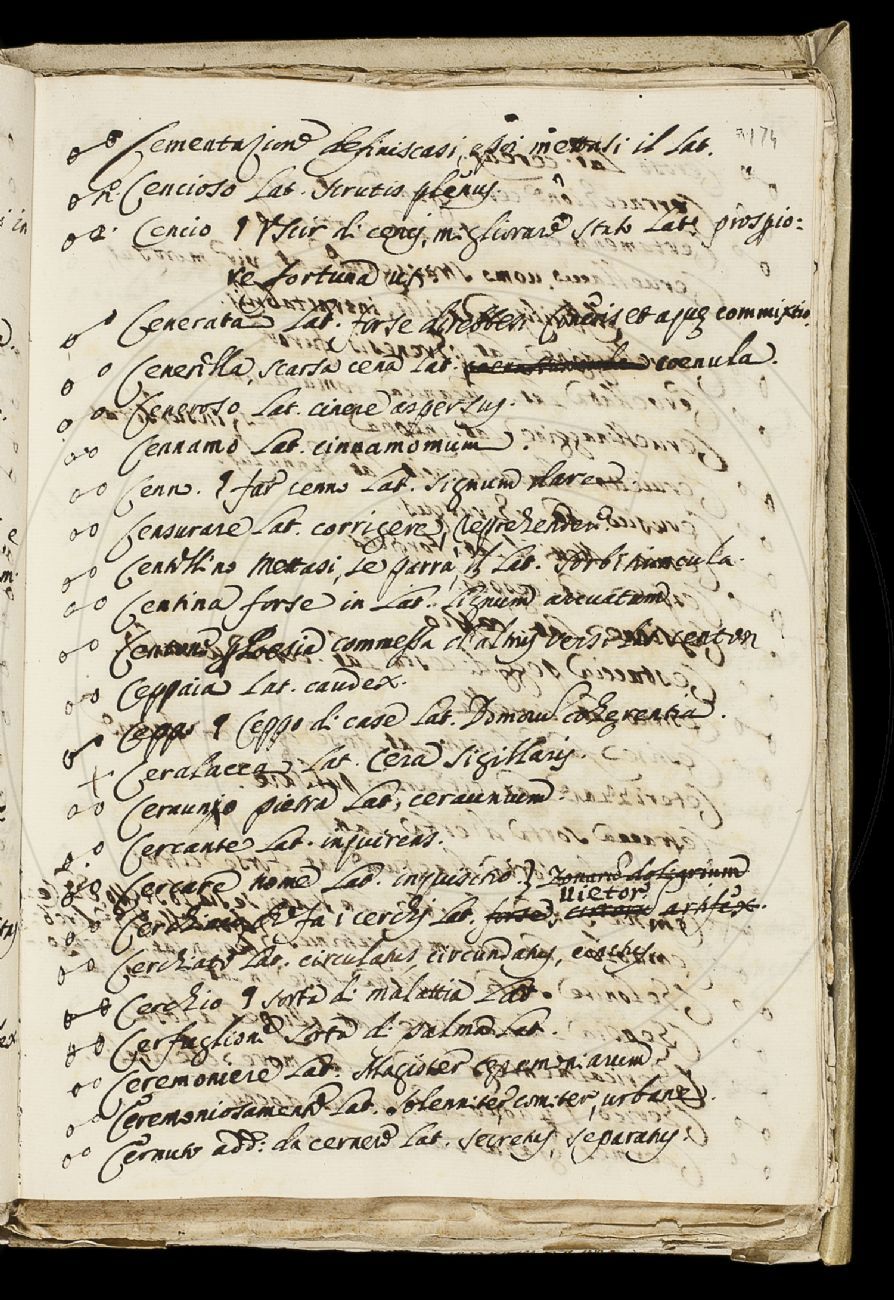 174
Cementazione definiscasi, e poi mettasi il Lat.
Cencioso Lat. scrutis plenus
Cencio ¶ Uscir di cenci, migliorare stato Lat. prospio=
re fortuna uti
Cenerata Lat. forse direbbesi cineris, et aquæ commixtio
Cenerella scarsa cena Lat. coenula.
Ceneroso Lat. cinere aspersus.
Cennamo Lat. cinnamomum.
Cenno. ¶ far cenno Lat. signum dare
Censurare Lat. corrigere, reprehendere
Centellino Mettasi, se parrà, il Lat. Sorbitiuncula.
Centina forse in Lat. Lignum arcuatum
Centone Poesia commessa d'altrui versi Lat. centon
Ceppaia Lat. caudex.
Ceppo ¶ Ceppo di case Lat. Domorum cohærentia.
Ceralacca Lat. Cera sigillaris.
Ceraunio pietra Lat. ceraunium.
Cercante Lat. inquirens.
Cercare nome Lat. inquisitio.
uietor
Cerchiaio che fa i cerchi Lat. forse, artifex.
Cerchiato Lat. circulatus, circundatus,
Cerchio ¶ sorta di malattia Lat.
Cerfuglione sorta di palma Lat.
Ceremoniere Lat. Magister cæremoniarum
Ceremoniosamente Lat. solenniter, comiter, urbane.
Cernuto add: da cernere Lat. secretus, separatus.